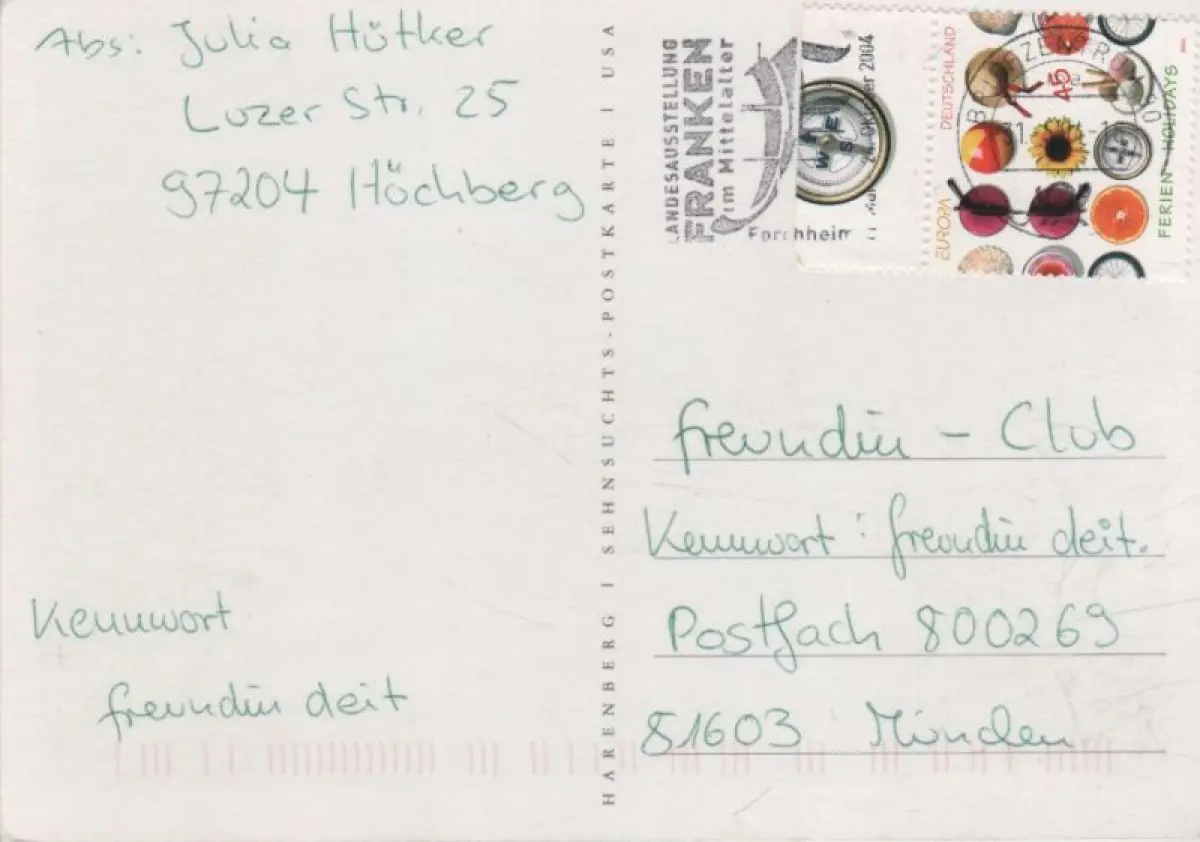 Abs: Julia Hütker
Luzer Str. 25
97204 Höchberg
Kennwort
freundin deit
HARENBERG | SEHNSUCHTS-POSTKARTE | USA
LANDESAUSSTELLUNG
FRANKEN
im Mittelalter
Forchheim
2004
DEUTSCHLAND
EUROPA
45
FERIEN HOLIDAYS
freundin - Club
Kennwort: freundin deit.
Postfach 800269
81603 München